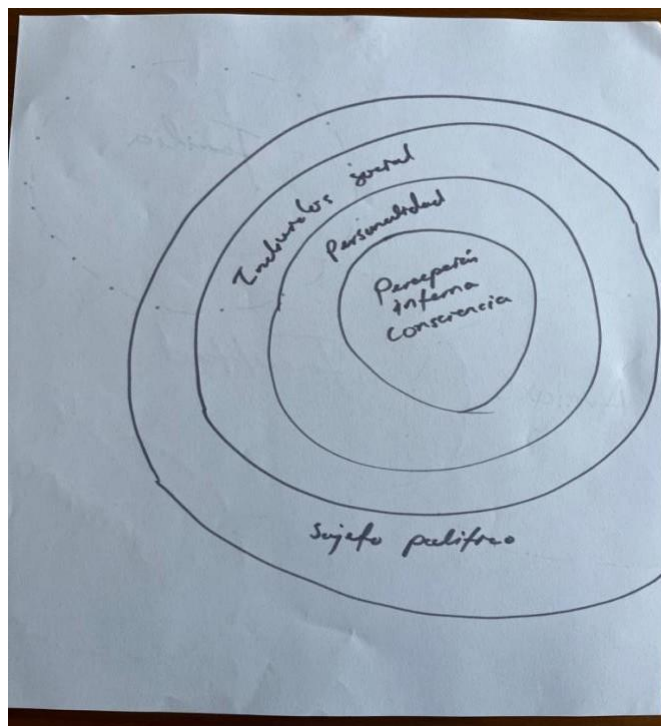 Individuos social
Personalidad
Percepción
interna
consciencia
Sujeto político
Familia